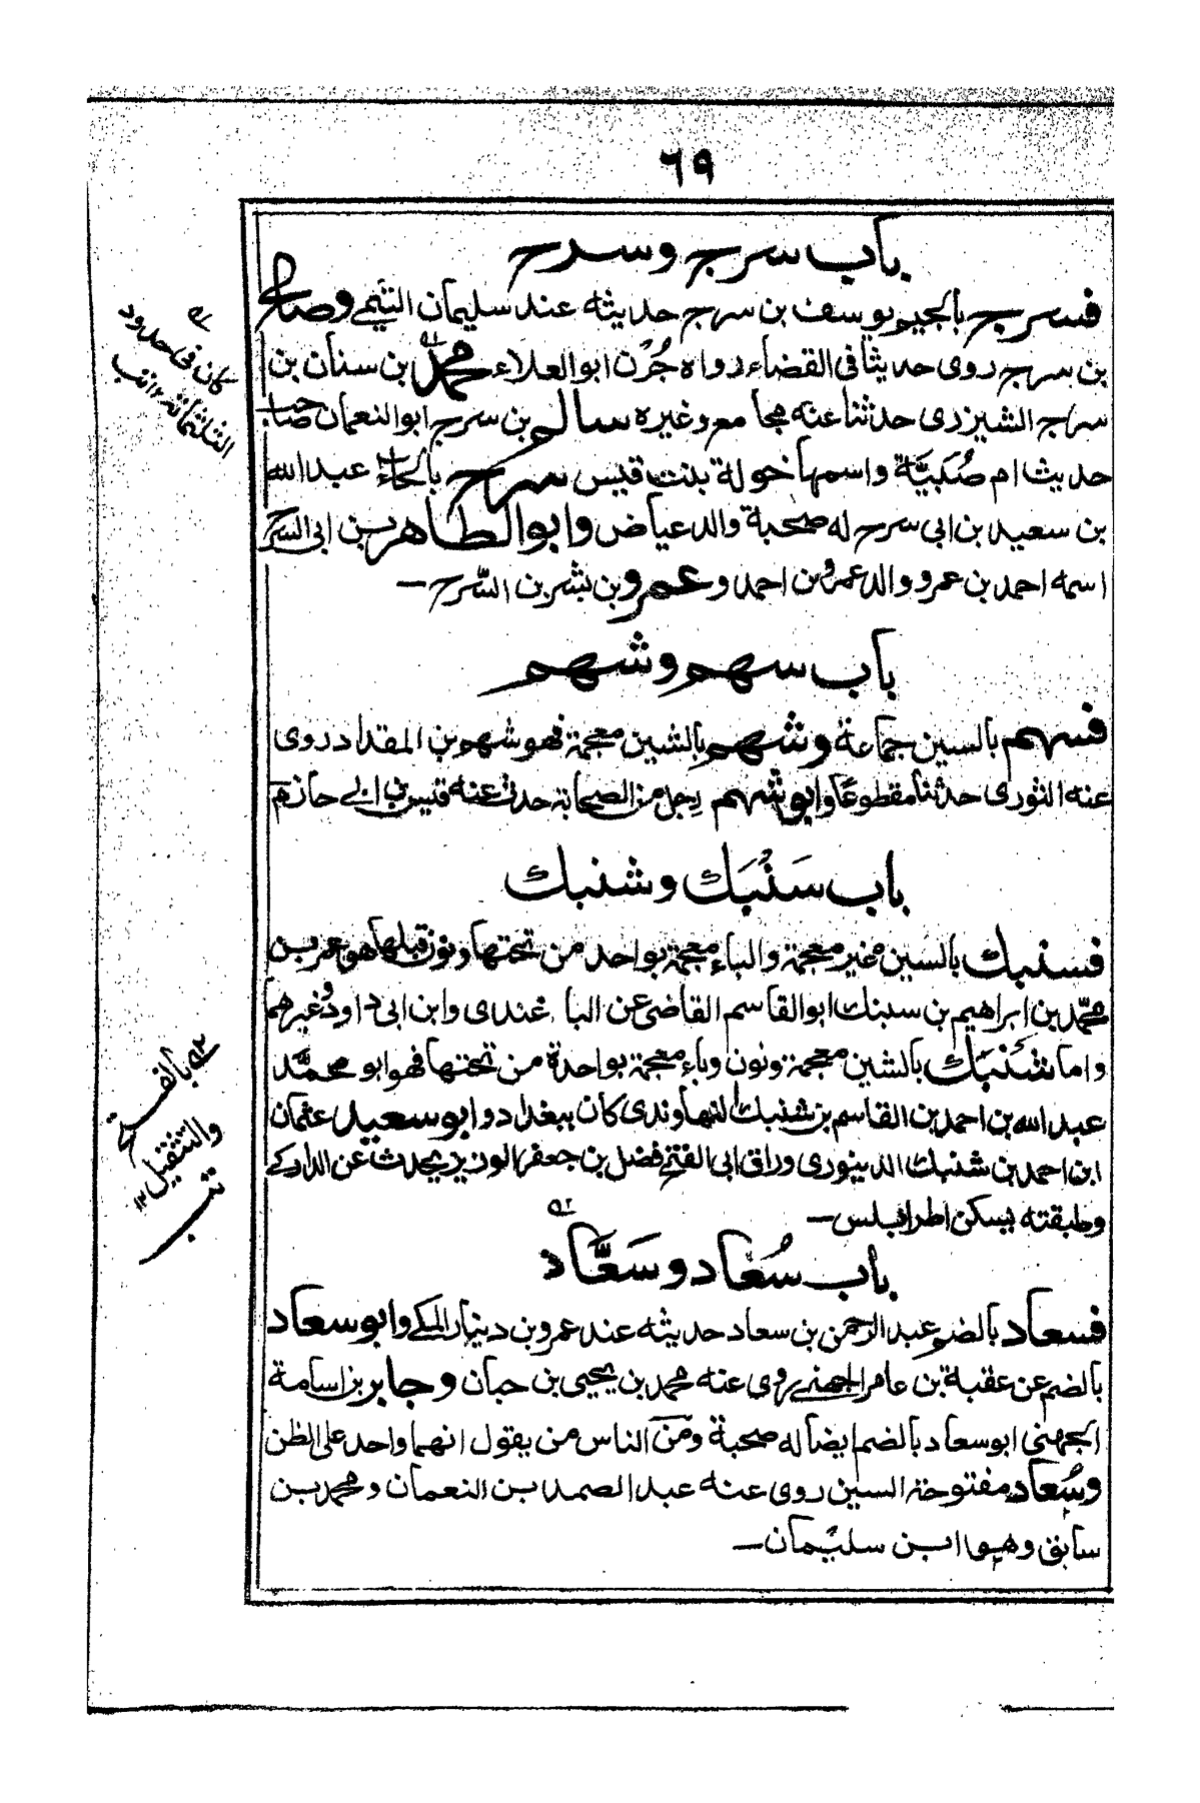 ٦٩
باب سرج وسرح
فسرج بالجيم يوسف بن سرج حديثه عند سليمان التيمي وصالح
بن سرج روى حديثا في القضاء رواه ابو العلاء محمد بن سنان بن
سراج الشيزري حدثنا عنه وغيره سالم بن سرج ابو النعمان صاحب
حديث ام صبية واسمها خولة بنت قيس سرح بالحاء عبد الله
بن سعيد بن ابى سرح له صحبة والد عياض وابو الطاهر بن ابى السرح
اسمه احمد بن عمرو والد عمرو بن احمد وعمرو بن بشر بن السّرح
باب سهم وشهم
فسهم بالسين جماعة وشهم بالشين معجمة فهو شهم بن المقداد روى
عنه الثورى حدثنا مقطوعا وابو شهم رجل من الصحابة حدث عنه قيس بن ابي حازم
باب سَنْبَك وشنبك
فسنبك بالسين غير معجمة والباء معجمة بواحد من تحتها ونون قبلها هو عمر بن
محمّد بن ابراهيم بن سبنك ابو القاسم القاضى عن الباغندى وابن ابى داود وغيرهم
واما شَنْبَك بالشين معجمة ونون وباء معجمة بواحدة من تحتها فهو ابو محمّد
عبد الله بن احمد بن القاسم بن شنبك النهاوندى كان ببغداد وابو سعيد عثمان
ابن احمد بن شنبك الدينورى وراق ابى الفتح فضل بن جعفر الوزير يحدث عن
وطبقته يسكن اطرابلس
باب سُعاد وسَعَّاد
فسعاد بالضم عبد الرحمن بن سعاد حديثه عند عمرو بن دينار المكي وابو سعاد
بالضم عن عقبة بن عامر الجهني روى عنه محمد بن يحيى بن حبان وجابر بن اسامة
الجهني ابو سعاد بالضم ايضا له صحبة ومن الناس من يقول انهما واحد على الظن
وسُعاد مفتوحة السين روى عنه عبد الصمد بن النعمان ومحمد بن
سابق وهو ابن سليمان
كان فى حدود
الثلثمائة
بالفتح
والتثقيل ١٢